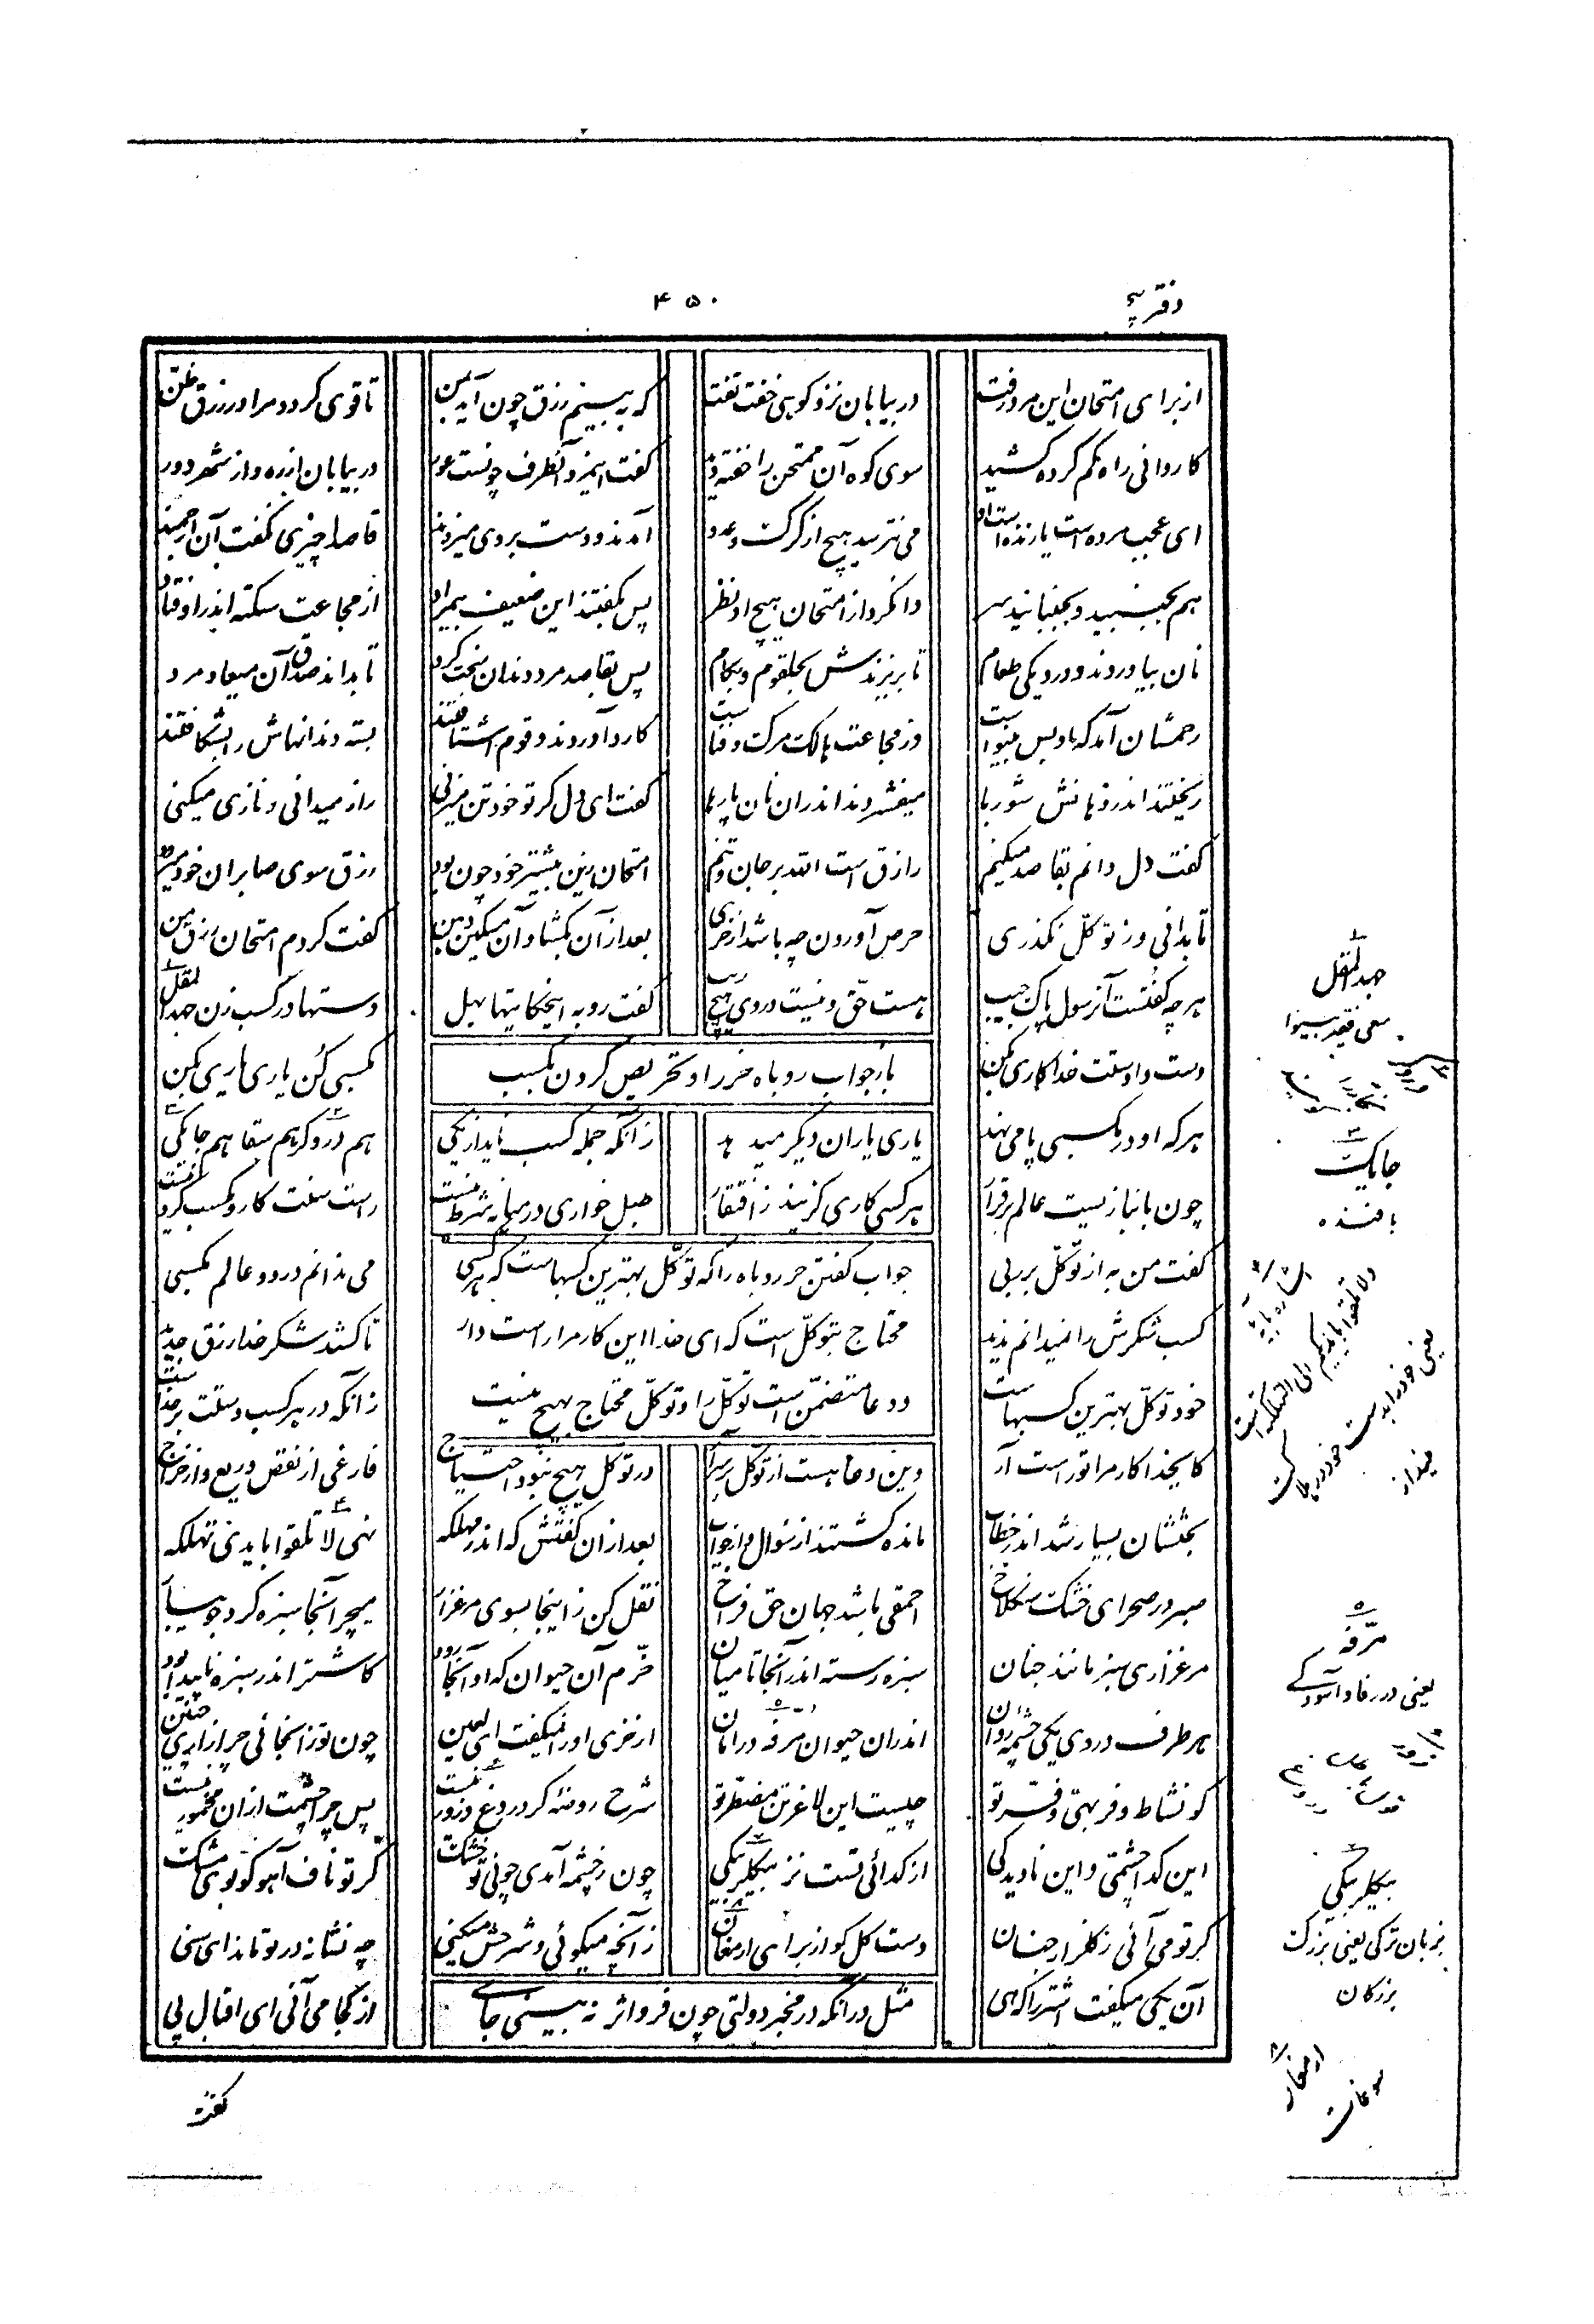 دفتر پنجم
۴۵۰
از برای امتحان این مرد رفت در بیابان نزد کوهی خفت تفت که ببینم رزق چون آید بمن تا قوی گردد مرا در رزق ظن
کاروانی راه گم کرده کشید سوی کوه آن ممتحن را خفته دید گفت اینمرد آنطرف چونست عور در بیابان از ره و از شهر دور
ای عجب مرده است یا زنده است او می نترسد هیچ از گرگ و عدو آمدند و دست بر وی میزدند قاصدا چیزی نگفت آن ارجمند
هم نجنبید و نجنبانید سر وا نکرد از امتحان هیچ او نظر پس بگفتند این ضعیف بیمراد از مجاعت سکته اندر اوفتاد
نان بیاوردند و در دیگی طعام تا بریزندش بحلقوم و بکام پس بقاصد مرد دندان سخت کرد تا بداند صدق آن میعاد مرد
رحمشان آمد که او بس بینواست وز مجاعت هالک مرگ و فناست کارد آوردند و قوم اشتافتند بسته دندانهاش را بشکافتند
ریختند اندر دهانش شوربا میفشردند اندران نان پارها گفت ای دل گر تو خود تن میزنی راز میدانی و نازی میکنی
گفت دل دانم بقاصد میکنم رازق است الله بر جان و تنم امتحان زین بیشتر خود چون بود رزق سوی صابران خود میرود
تا بدانی وز توکّل نگذری حرص آوردن چه باشد از خری بعد از آن بگشاد آن مسکین دهن گفت کردم امتحان رزق من
هر چه گفتست آنرسول پاک جیب هست حقّ و نیست در وی هیچ ریب گفت روبه اینحکایتها بهل دستها در کسب زن جهد المقل
دست دادستت خدا کاری بکن
باز جواب روباه خر را و تحریص کردن بکسب
کسبی کُن یاری یاری بکن
هر که او در مکسبی پا می نهد یاری یاران دیگر میدهد زآنکه جمله کسب ناید از یکی هم دروگر هم سقا هم حایکی
چون بانبازیست عالم برقرار هر کسی کاری گزیند ز افتقار طبل خواری در میانه شرط نیست راست سنت کار و مکسب کردنیست
گفت من به از توکّل بر ربی
جواب گفتن خر روباه را که توکّل بهترین کسبهاست که هر کسی
می ندانم در دو عالم مکسبی
کسب شکرش را نمیدانم ندید
محتاج بتوکّل است که ای خدا این کار مرا راست دار
تا کشد شکر خدا رزق جدید
خود توکّل بهترین کسبهاست
و دعا متضمّن است توکّل را و توکّل محتاج بهیچ نیست
زانکه در هر کسب دستت بر خداست
کایخدا کار مرا تو راست آر وین دعا هست از توکّل بر سرآر در توکل هیچ نبود احتیاج فارغی از نقص و ریع و از خراج
بحثشان بسیار شد اندر خطاب مانده گشتند از سئوال و از جواب بعد از ان گفتش که اندر مهلکه نهی لا تلقوا بایدی تهلکه
صبر در صحرای خشک سنگلاخ احمقی باشد جهان حق فراخ نقل کن زاینجا بسوی مرغزار میچر آنجا سبزه گرد جویبار
مرغزاری سبز مانند جنان سبزه رسته اندر آنجا تا میان خرّم آن حیوان که او آنجا رود کاشتر اندر سبزه ناپیدا بود
هر طرف در وی یکی چشمه روان اندران حیوان مرفّه در امان از خری او را نمیگفت ای لعین چون تو زانجائی چرا زاری چنین
کو نشاط و فربهی و فرّ تو چیست این لاغر تن مضطرّ تو شرح روضه گر دروغ و زور نیست پس چرا چشمت ازان مخمور نیست
این گدا چشمی و این نادیدگی از گدائی تست نز بیگلربیگی چون ز چشمه آمدی چونی تو خشک گر تو ناف آهو کو بوی مشک
گر تو می آئی ز گلزار جنان دست گل کو از برای ارمغان ز آنچه میگوئی و شرحش میکنی چه نشانه در تو ماند ای سنی
آن یکی میگفت اشتر را که هی
مثل در آنکه در مخبر دولتی چون فر و اثر نه بینی جای
از کجا می آئی ای اقبال پی
گفت
جهد المقل
سعی فقیر بینوا
حایک
بافنده
اشاره بآیه
ولا تلقوا بایدیکم الی التهلکه است
یعنی خود را بدست خود در هلاکت
میندازد
مرّفه
یعنی در رفاه و آسودگی
بیگلربیگی
بزبان ترکی یعنی بزرگ
بزرگان
ارمغان
سوغات